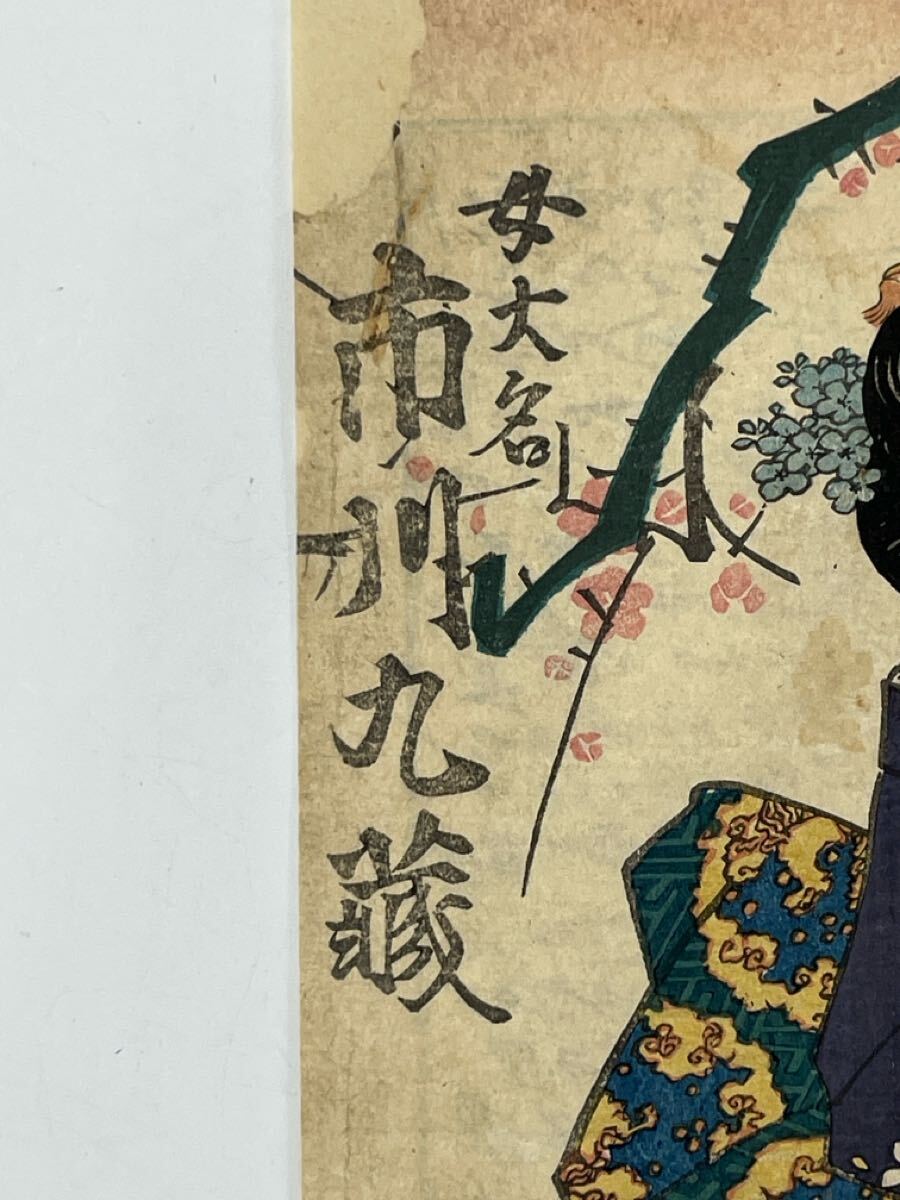 女大名
市川九蔵